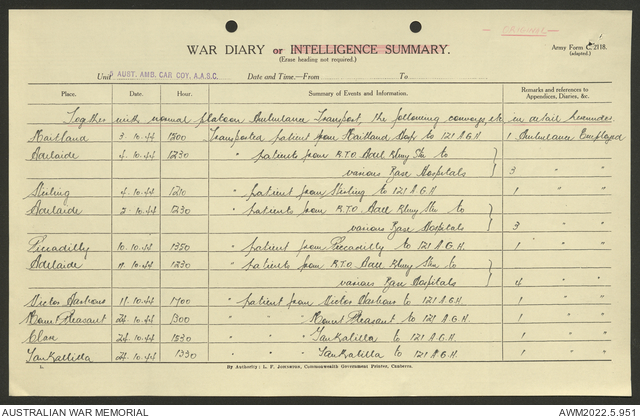 ORIGINAL
WAR DIARY or INTELLIGENCE SUMMARY.
(Erase heading not required.)
Army Form C. 2118.
(adapted.)
Unit 5 AUST. AMB. CAR COY. A.A.S.C. Date and Time.—From To
Place. Date. Hour. Summary of Events and Information. Remarks and references to Appendices, Diaries, &c.
Together with normal platoon Ambulance Transport, the following convoys, etc in detail
Maitland 3.10.44 1200 Transported patient from Maitland Hosp to 121 A.G.H 1 Ambulance Employed
Adelaide 4.10.44 1230 " patients from R.T.O. Adel Rlwy Stn to
various Base Hospitals 3 " "
Stirling 4.10.44 1210 " patient from Stirling to 121 A.G.H 1 " "
Adelaide 2.10.44 1230 " patients from R.T.O. Adel Rlwy Stn to
various Base Hospitals 3 " "
Piccadilly 10.10.44 1350 " patient from Piccadilly to 121 A.G.H. 1 " "
Adelaide 11.10.44 1230 " patients from R.T.O. Adel Rlwy Stn to
various Base Hospitals 4 " "
Victor Harbour 11.10.44 1700 " patient from Victor Harbour to 121 A.G.H. 1 " "
Mount Pleasant 24.10.44 1300 " " " Mount Pleasant to 121 A.G.H. 1 " "
Clare 24.10.44 1530 " " " Yankalilla to 121 A.G.H. 1 " "
Yankalilla 24.10.44 1330 " " " Yankalilla to 121 A.G.H. 1 " "
L. By Authority: L. F. Johnston, Commonwealth Government Printer, Canberra.
AUSTRALIAN WAR MEMORIAL AWM2022.5.951